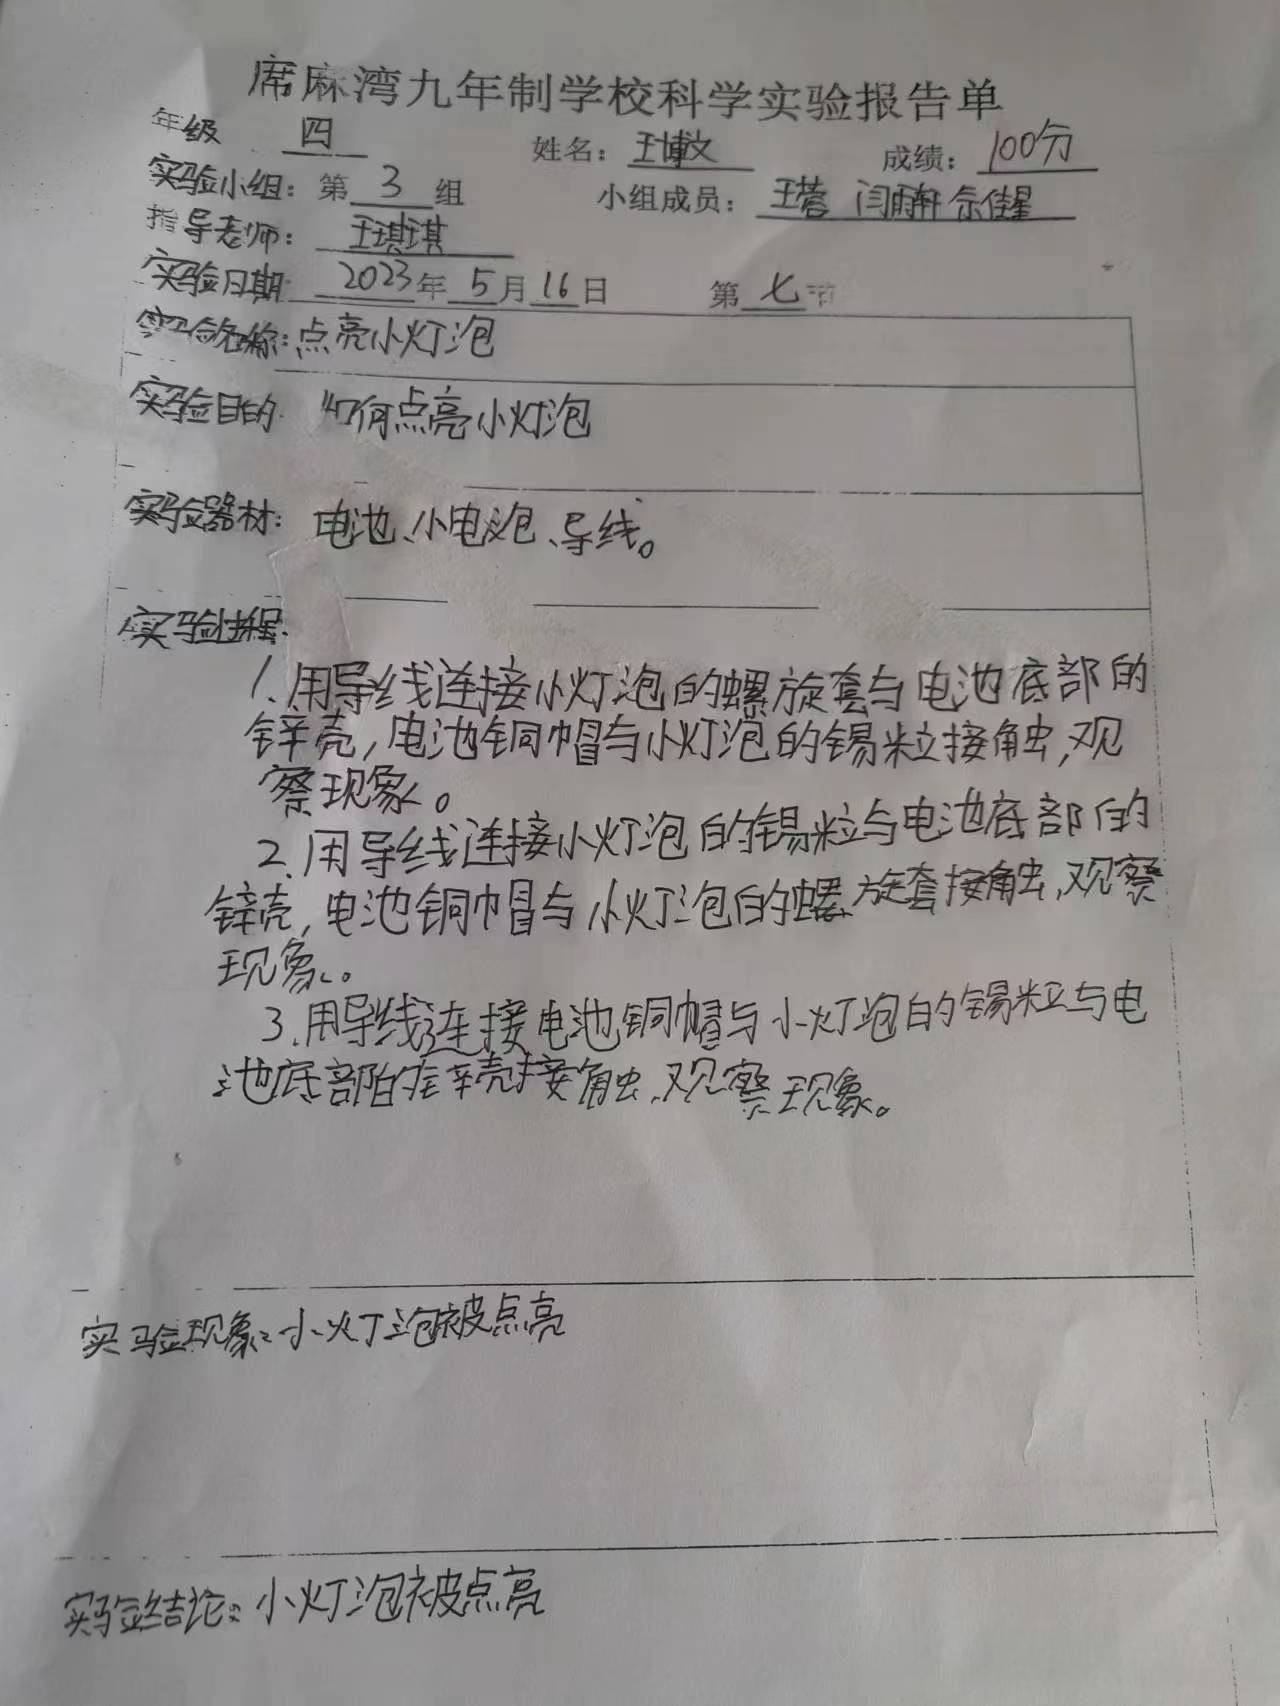 席麻湾九年制学校科学实验报告单
年级 四 姓名：王博文 成绩：100分
实验小组：第 3 组 小组成员：王蓉 闫雨轩 佳星
指导老师：王琪琪
实验日期 2023年5月16日 第七节
实验名称：点亮小灯泡
实验目的 如何点亮小灯泡
实验器材：电池、小电泡、导线。
实验过程
1.用导线连接小灯泡的螺旋套与电池底部的
锌壳，电池铜帽与小灯泡的锡粒接触，观
察现象。
2.用导线连接小灯泡的锡粒与电池底部的
锌壳，电池铜帽与小灯泡的螺旋套接触，观察
现象。
3.用导线连接电池铜帽与小灯泡的锡粒与电
池底部的锌壳接触，观察现象。
实验现象：小灯泡被点亮
实验结论：小灯泡被点亮